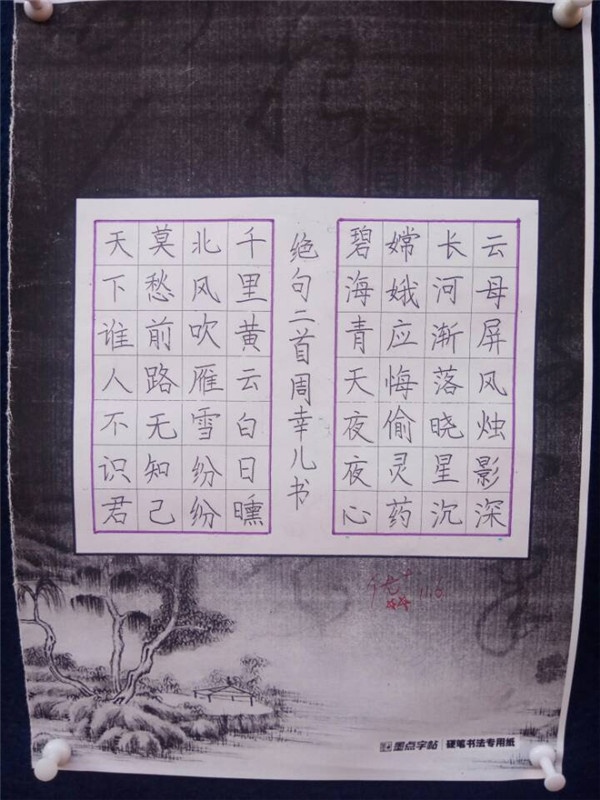 云母屏风烛影深
长河渐落晓星沉
嫦娥应悔偷灵药
碧海青天夜夜心
绝句二首周幸儿书
千里黄云白日曛
北风吹雁雪纷纷
莫愁前路无知己
天下谁人不识君
墨点字帖 硬笔书法专用纸